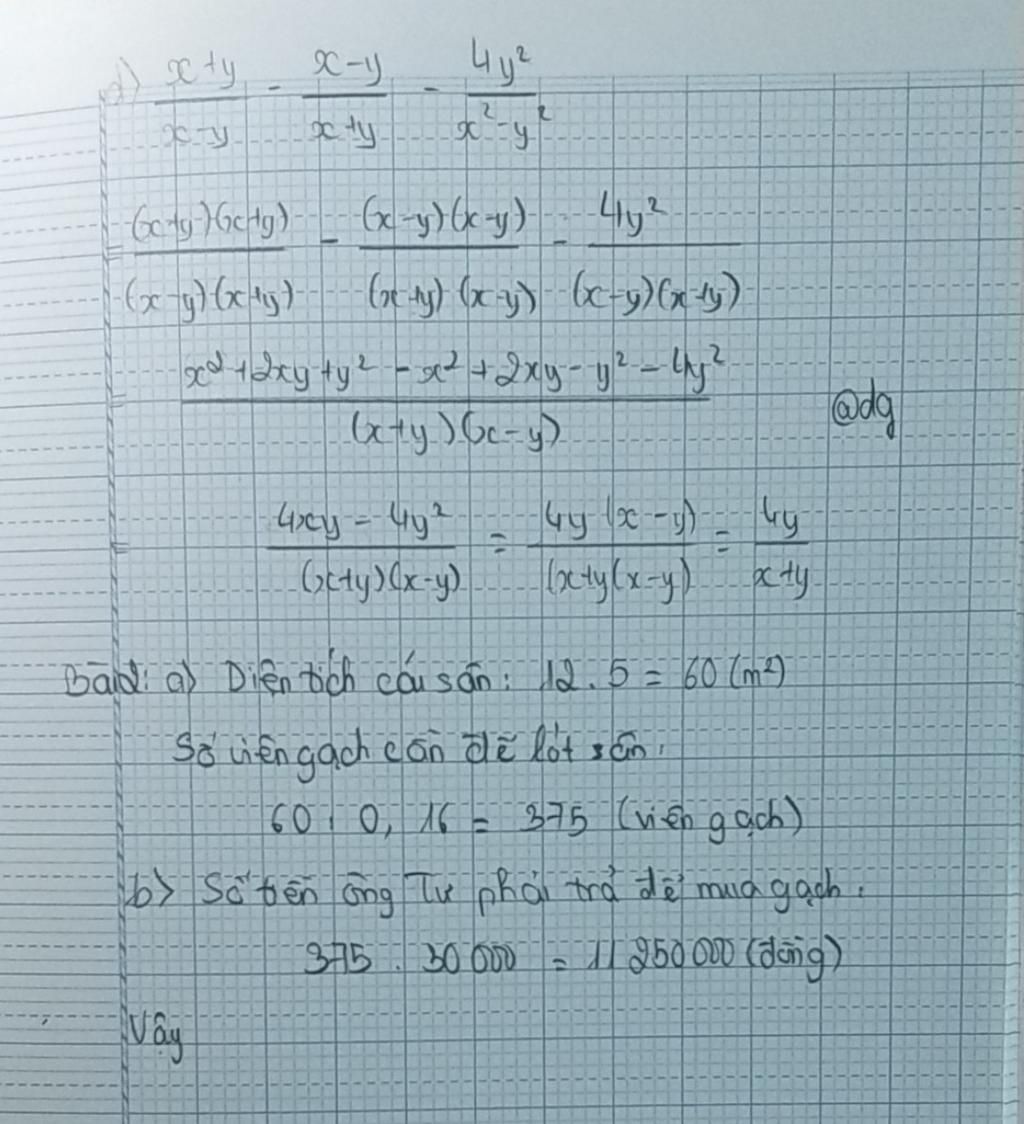 d) (x+y)/(x-y) - (x-y)/(x+y) - 4y²/(x²-y²)
= (x+y)(x+y)/(x-y)(x+y) - (x-y)(x-y)/(x+y)(x-y) - 4y²/(x-y)(x+y)
= x²+2xy+y²-x²+2xy-y²-4y²/(x+y)(x-y)
@dg
= 4xy-4y²/(x+y)(x-y) = 4y(x-y)/(x+y(x-y) = 4y/x+y
Bài2: a) Diện tích cái sân: 12.5 = 60 (m²)
Số viên gạch cần để lót sân:
60 : 0,16 = 375 (viên gạch)
b) Số tiền ông Tư phải trả để mua gạch:
375 . 30 000 = 11 250 000 (đồng)
Vậy